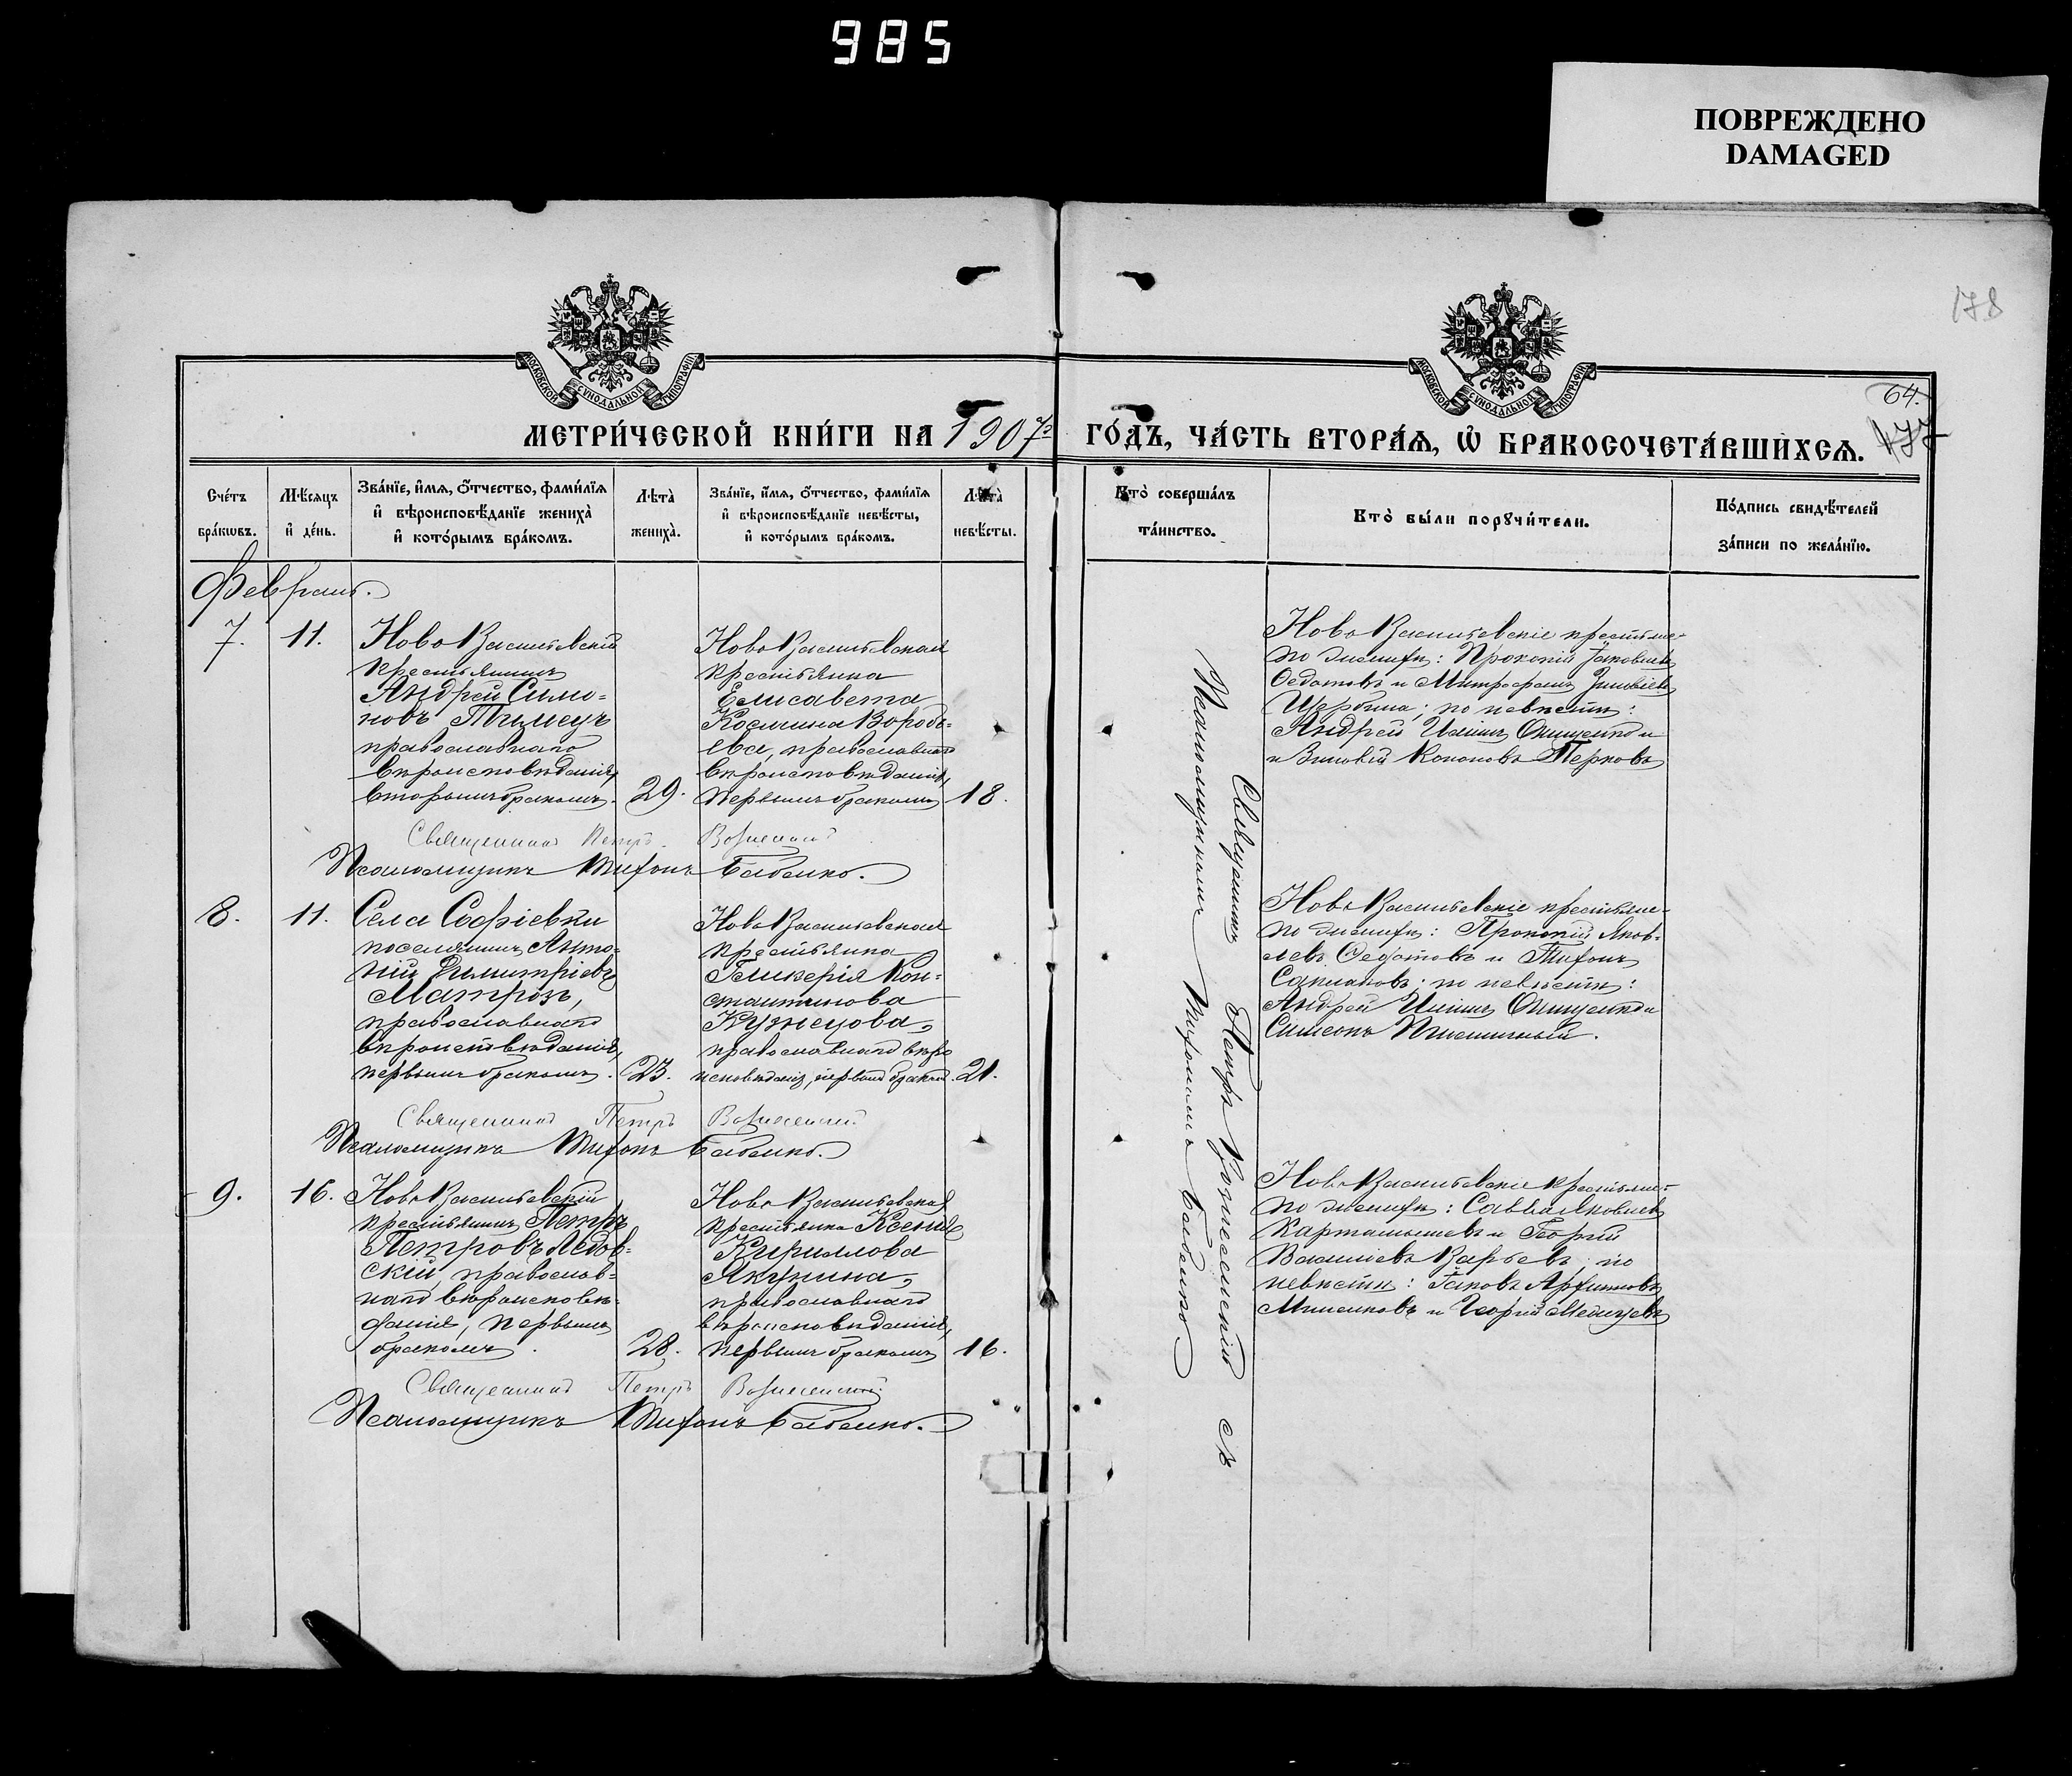 985
ПОВРЕЖДЕНО
DAMAGED
178
64.
МОСКОВСКОЙ СѴНОДАЛЬНОЙ ТИПОГРАФІИ
МОСКОВСКОЙ СѴНОДАЛЬНОЙ ТИПОГРАФІИ
МЕТРИ́ЧЕСКОЙ КНИ́ГИ НА 1907 ГО́ДЪ, ЧА́СТЬ ВТОРА́Ѧ, Ѽ БРАКОСОЧЕТА́ВШИХСѦ.
Сче́тъ бра́кѡвъ.
Мѣ́сѧцъ и҆ де́нь.
Зва́нїе, и҆́мѧ, о҆́тчество, фами́лїѧ и҆ вѣроисповѣ́данїе жениха̀ и҆ кото́рымъ бра́комъ.
Лѣ́та̀ жениха̀.
Зва́нїе, и҆́мѧ, о҆́тчество, фами́лїѧ и҆ вѣроисповѣ́данїе невѣ́сты, и҆ кото́рымъ бра́комъ.
Лѣ́та̀ невѣ́сты.
Кто̀ соверша́лъ та́инство.
Кто̀ бы́ли порꙋчи́тели.
По́дпись свидѣ́телей за́писи по жела́нїю.
Февраль.
7.
11.
Ново Васильевскій
крестьянинъ
Андрей Симо-
новъ
православнаго
вѣроисповѣданія,
вторымъ бракомъ.
29.
Ново Васильевская
крестьянка
Елисавета
Космина Воробь-
ева, православнаго
вѣроисповѣданія,
первымъ бракомъ
18.
Ново Васильевскіе крестьяне
по женихѣ: Прокопій Іаковлевъ
Федотовъ и Митрофанъ Зиновіевъ
Щербина; по невѣстѣ:
Андрей Ильинъ Онищенко
и Зиновій Кононовъ Перковъ
Священникъ Петръ Вознесенскій
Псаломщикъ Тихонъ Бабенко.
8.
11.
Села Софіевки
поселянинъ Анто-
ній Димитріевъ
Матрозъ,
православнаго
вѣроисповѣданія,
первымъ бракомъ.
23.
Ново Васильевская
крестьянка
Гликерія Кон-
стантинова
Кузнецова,
православнаго вѣро
исповѣданія, первымъ бракомъ.
21.
Ново Васильевскіе крестьяне
по женихѣ: Прокопій Яков-
левъ Федотовъ и Тихонъ
по невѣстѣ:
Андрей Ильинъ Онищенко и
Симеонъ Пшеничный.
Священникъ Петръ Вознесенскій
Псаломщикъ Тихонъ Бабенко.
9.
16.
Ново Васильевскій
крестьянинъ Петръ
Петровъ Ледов-
скій, православ-
наго вѣроисповѣ-
данія, первымъ
бракомъ.
28.
Ново Васильевская
крестьянка Ксенія
Кириллова
Якунина,
православнаго
вѣроисповѣданія,
первымъ бракомъ
16.
Ново Васильевскіе крестьяне
по женихѣ: Савва Яковлевъ
Карташевъ и Георгій
Васильевъ Зарьевъ; по
невѣстѣ: Іаковъ
и Георгій
Священникъ Петръ Вознесенскій
Псаломщикъ Тихонъ Бабенко.
Священникъ Петръ Вознесенскій съ
Псаломщикомъ Тихономъ Бабенко